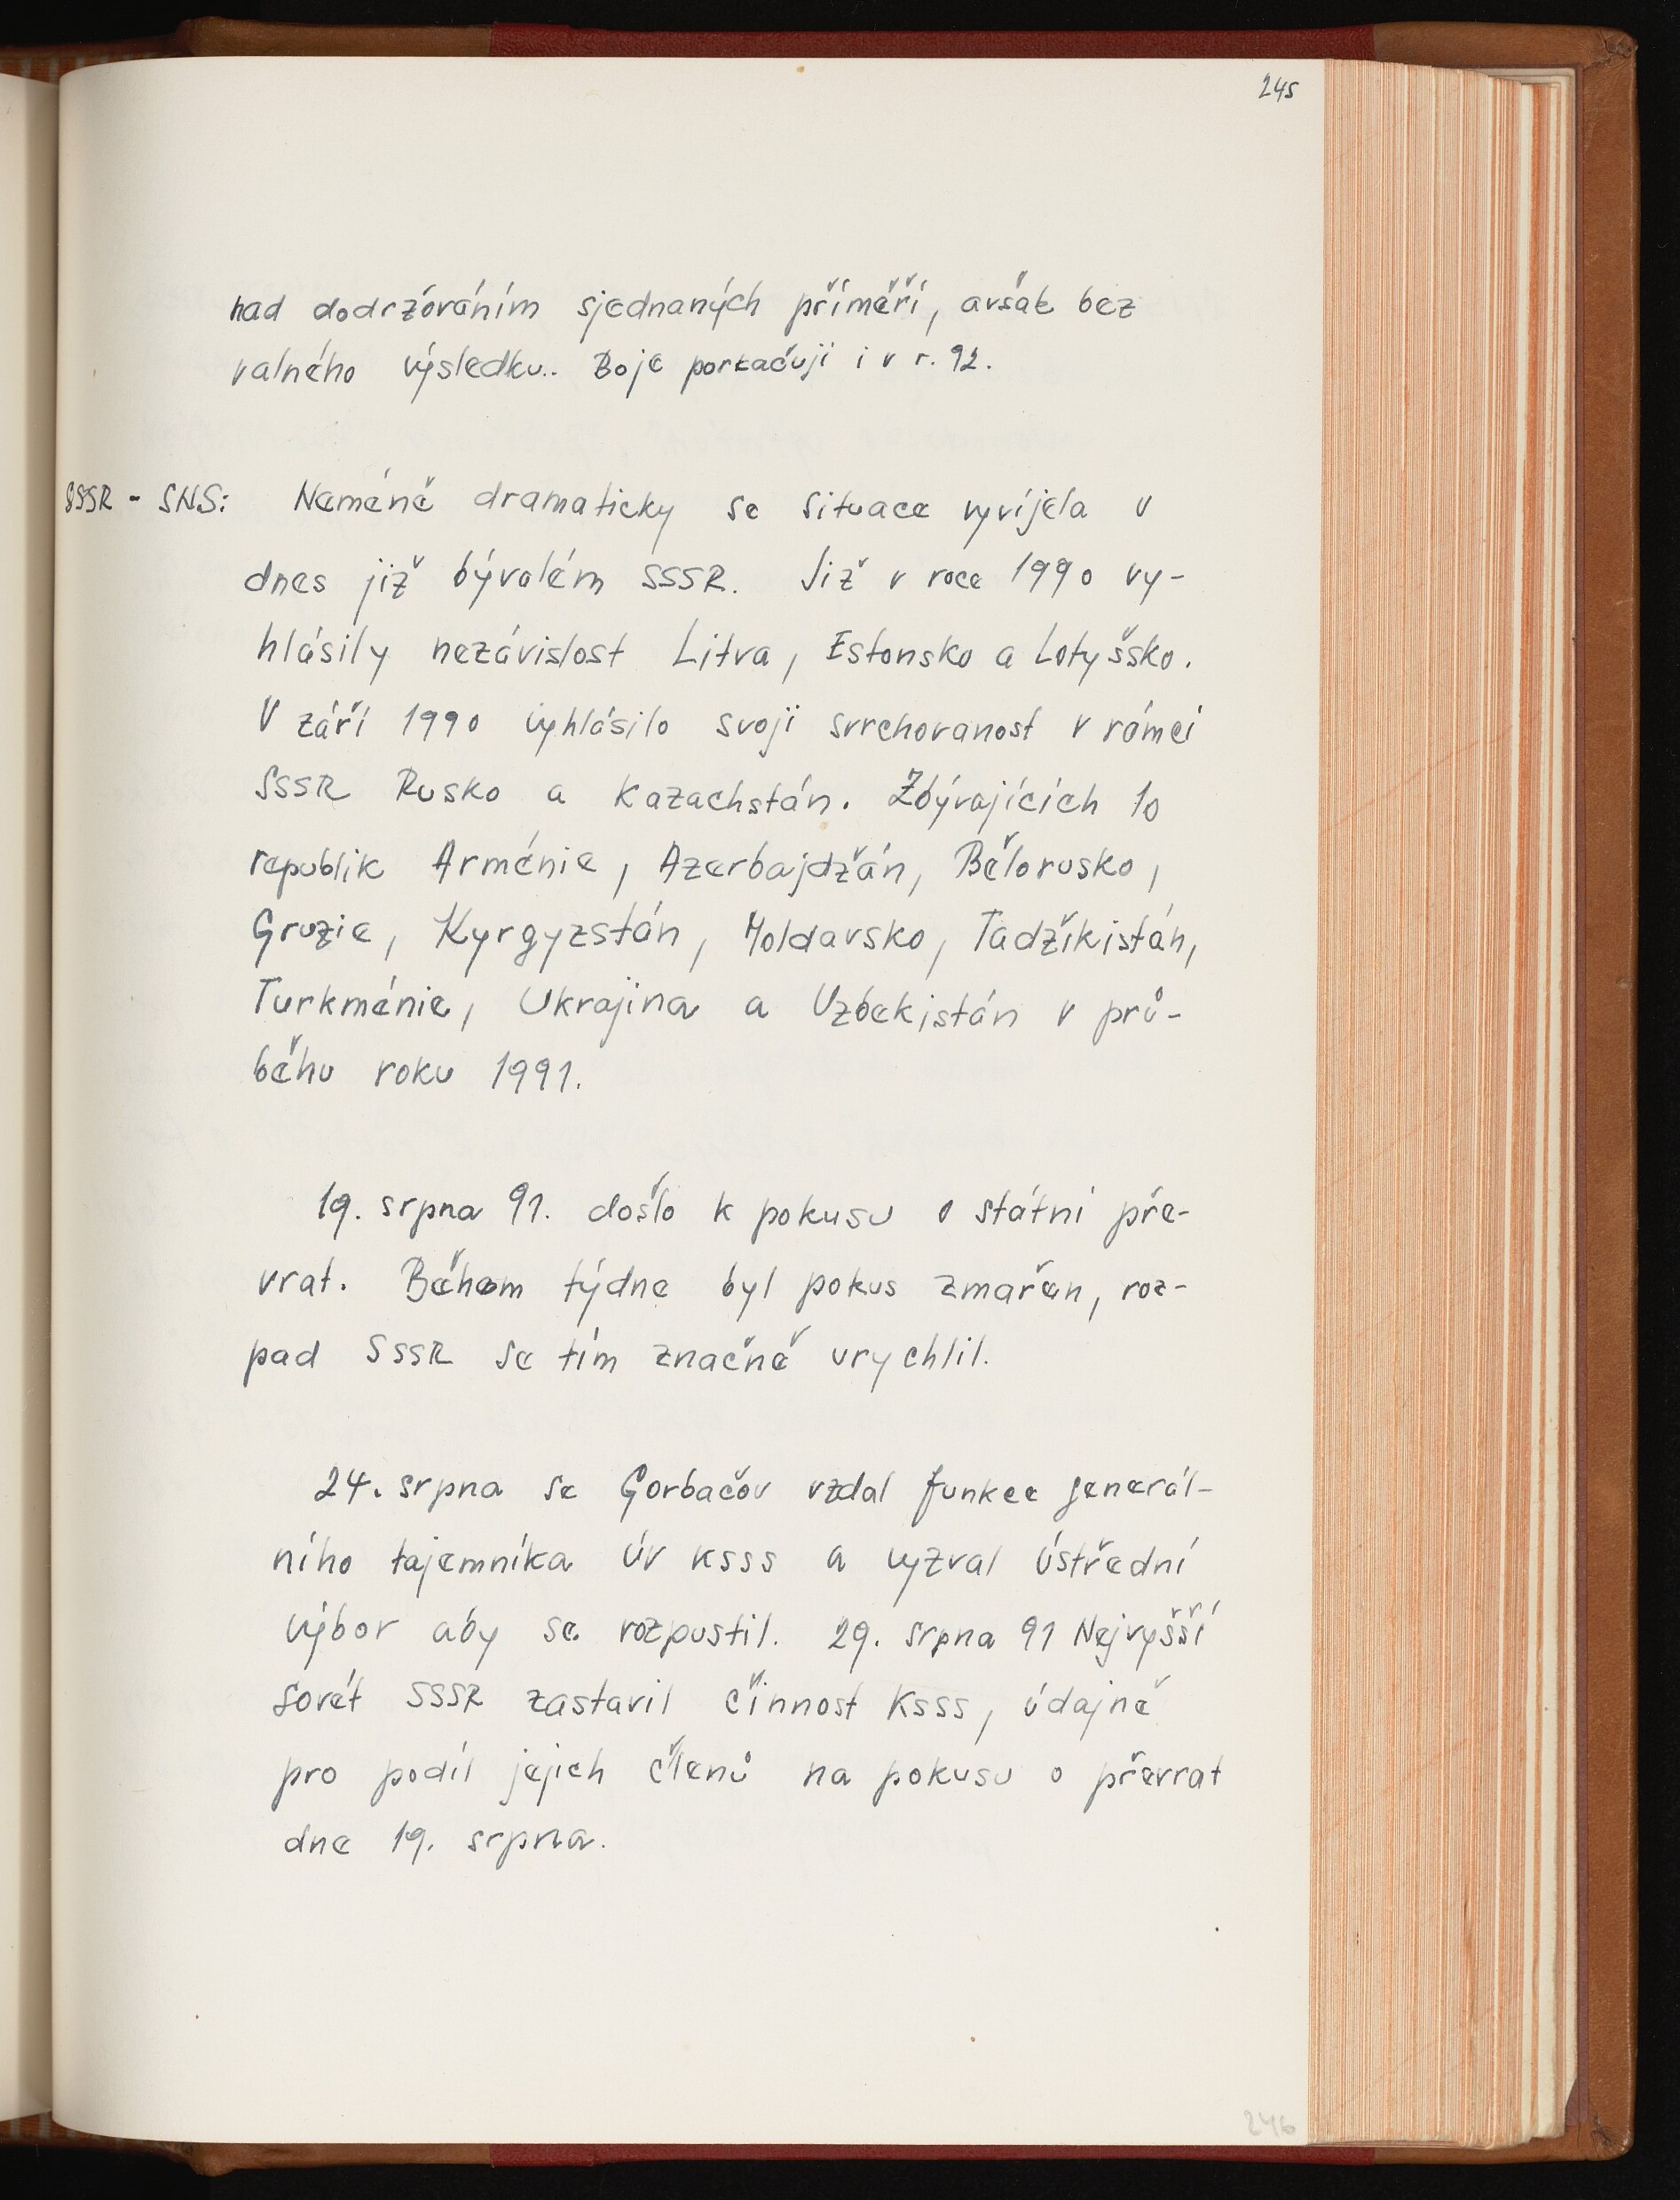 245
nad dodržováním sjednaných příměří, avšak bez
valného výsledku.. Boje pokračují i v r. 92.
SSSR - SNS: Neméně dramaticky se situace vyvíjela v
dnes již bývalém SSSR. Již v roce 1990 vy-
hlásily nezávislost Litva, Estonsko a Lotyšsko.
V září 1990 vyhlásilo svoji svrchovanost v rámci
SSSR Rusko a Kazachstán. Zbývajících 10
republik Arménie, Azerbajdžán, Bělorusko,
Gruzie, Kyrgyzstán, Moldavsko, Tadžikistán,
Turkménie, Ukrajina a Uzbekistán v prů-
běhu roku 1991.
19. srpna 91. došlo k pokusu o státní pře-
vrat. Během týdne byl pokus zmařen, roz-
pad SSSR se tím značně urychlil.
24. srpna se Gorbačov vzdal funkce generál-
ního tajemníka ÚV KSSS a vyzval Ústřední
výbor aby se rozpustil. 29. srpna 91 Nejvyšší
sovět SSSR zastavil činnost KSSS, údajně
pro podíl jejich členů na pokusu o převrat
dne 19. srpna.
246